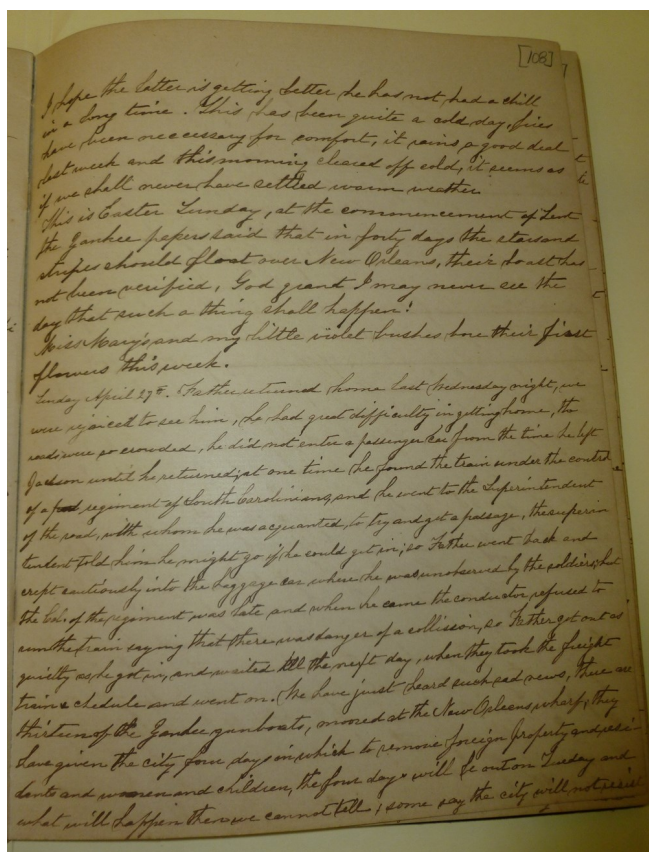 [108]
I hope the latter is getting better he has not had a chill
in a long time. This has been quite a cold day, fires
have been neccessary for comfort, it rains a good deal
last week and this morning cleared off cold, it seems as
if we shall never have settled warm weather
This is Easter Sunday, at the commencement of Lent
the Yankee papers said that in forty days the stars and
stripes should float over New Orleans, their boast has
not been verified, God grant I may never see the
day that such a thing shall happen!
Miss Mary's and my little violet bushes bore their first
flowers this week.
Sunday April 27th. Father returned home last Wednesday night, we
were rejoiced to see him, he had great difficulty in getting home, the
roads were so crowded, he did not enter a passenger car from the time he left
Jackson until he returned; at one time he found the train under the control
of a regiment of South Carolinians, and he went to the Superintendent
of the road, with whom he was acquanted, to try and get a passage, the superin
tendent told him he might go if he could get in; so Father went back and
crept cautiously into the baggage car where he was unobserved by the soldiers, but
the Col. of the regiment was late and when he came the conductor refused to
run the train saying that there was danger of a collission, so Father got out as
quietly as he got in, and waited till the next day, when they took the freight
train schedule and went on. We have just heard such sad news, there are
thirteen of the Yankee gunboats, moored at the New Orleans wharf, they
have given the city four days in which to remove foreign property and resi-
dents and women and children, the four days will be out on Tuesday and
what will happen then we cannot tell, some say the city will not resist